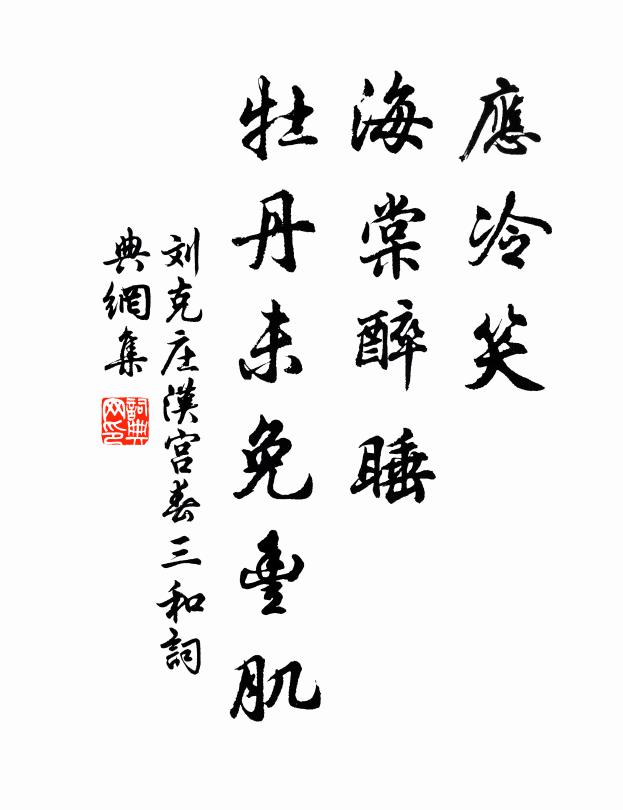 應冷笑
海棠醉睡
牡丹未免豊肌
刘克庄漢宮春三和詞
典網集
詞典網印